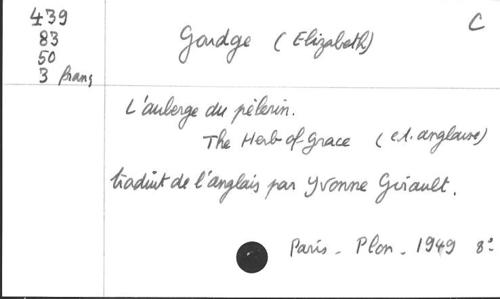 439
83
50
3 franç
C
Goudge (Elizabeth)
L'auberge du pélerin.
The Herb of Grace (éd. anglaise)
traduit de l'anglais par Yvonne Girault.
Paris - Plon - 1949 8°